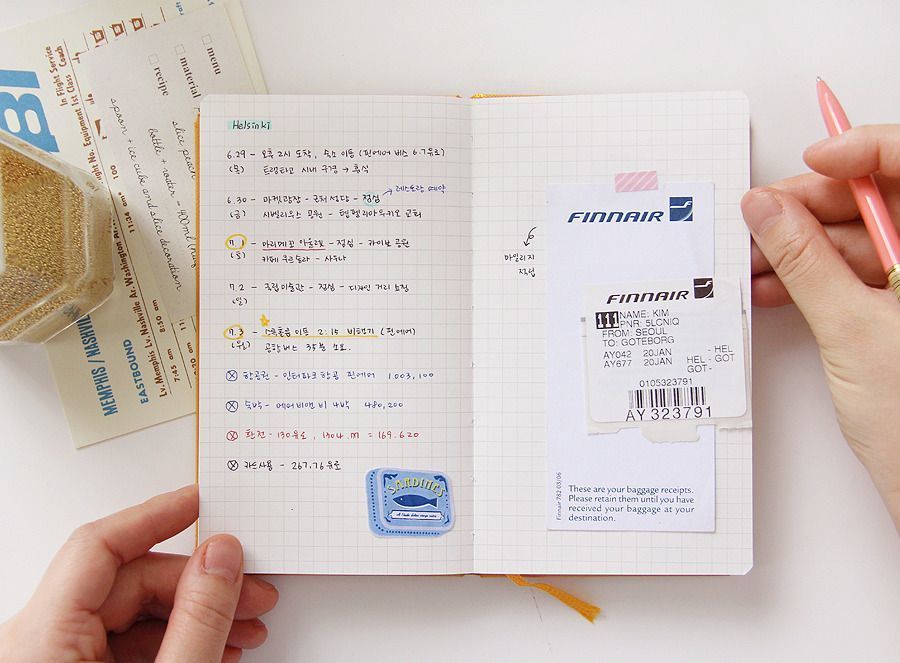 Helsinki
6.29 - 오후 2시 도착, 숙소 이동 (핀에어 버스 6.7유로)
(목) 트램타고 시내 구경 → 휴식
6.30 - 마켓광장 - 점심 → 레스토랑 예약
(금) 시벨리우스 공원 - 템펠리아우키오 교회
7.1 - 마리메꼬 아울렛 - 점심 - 카이보 공원
(토) 카페 우르술라 - 사우나
7.2 - 국립미술관 - 점심 - 디자인 거리 쇼핑
(일)
7.3 - 스톡홀름 이동 2:15 비행기 (핀에어)
(월) 공항버스 35분 소요.
항공권 - 인터파크 항공 핀에어 1,003,100
숙박 - 에어비앤비 4박 480,200
환전 - 130유로, = 169.620
카드사용 - 267.76 유로
SARDINES
마일리지
적립
FINNAIR
FINNAIR
111 NAME: KIM
PNR: 5LCNIQ
FROM: SEOUL
TO: GOTEBORG
AY042 20JAN HEL
AY677 20JAN HEL - GOT
GOT -
0105323791
AY 323791
Finnair 782 03/06
These are your baggage receipts.
Please retain them until you have
received your baggage at your
destination.
menu
material
recipe
slice peach
bottle + water - 400ml
spoon + ice cube and slice decoration
In Flight Service
Equipment 1st Class Coach
MEMPHIS / NASHVILLE
EASTBOUND
Lv. Memphis Lv. Nashville Ar. Washington
7:45 8:50 am 11:34 am